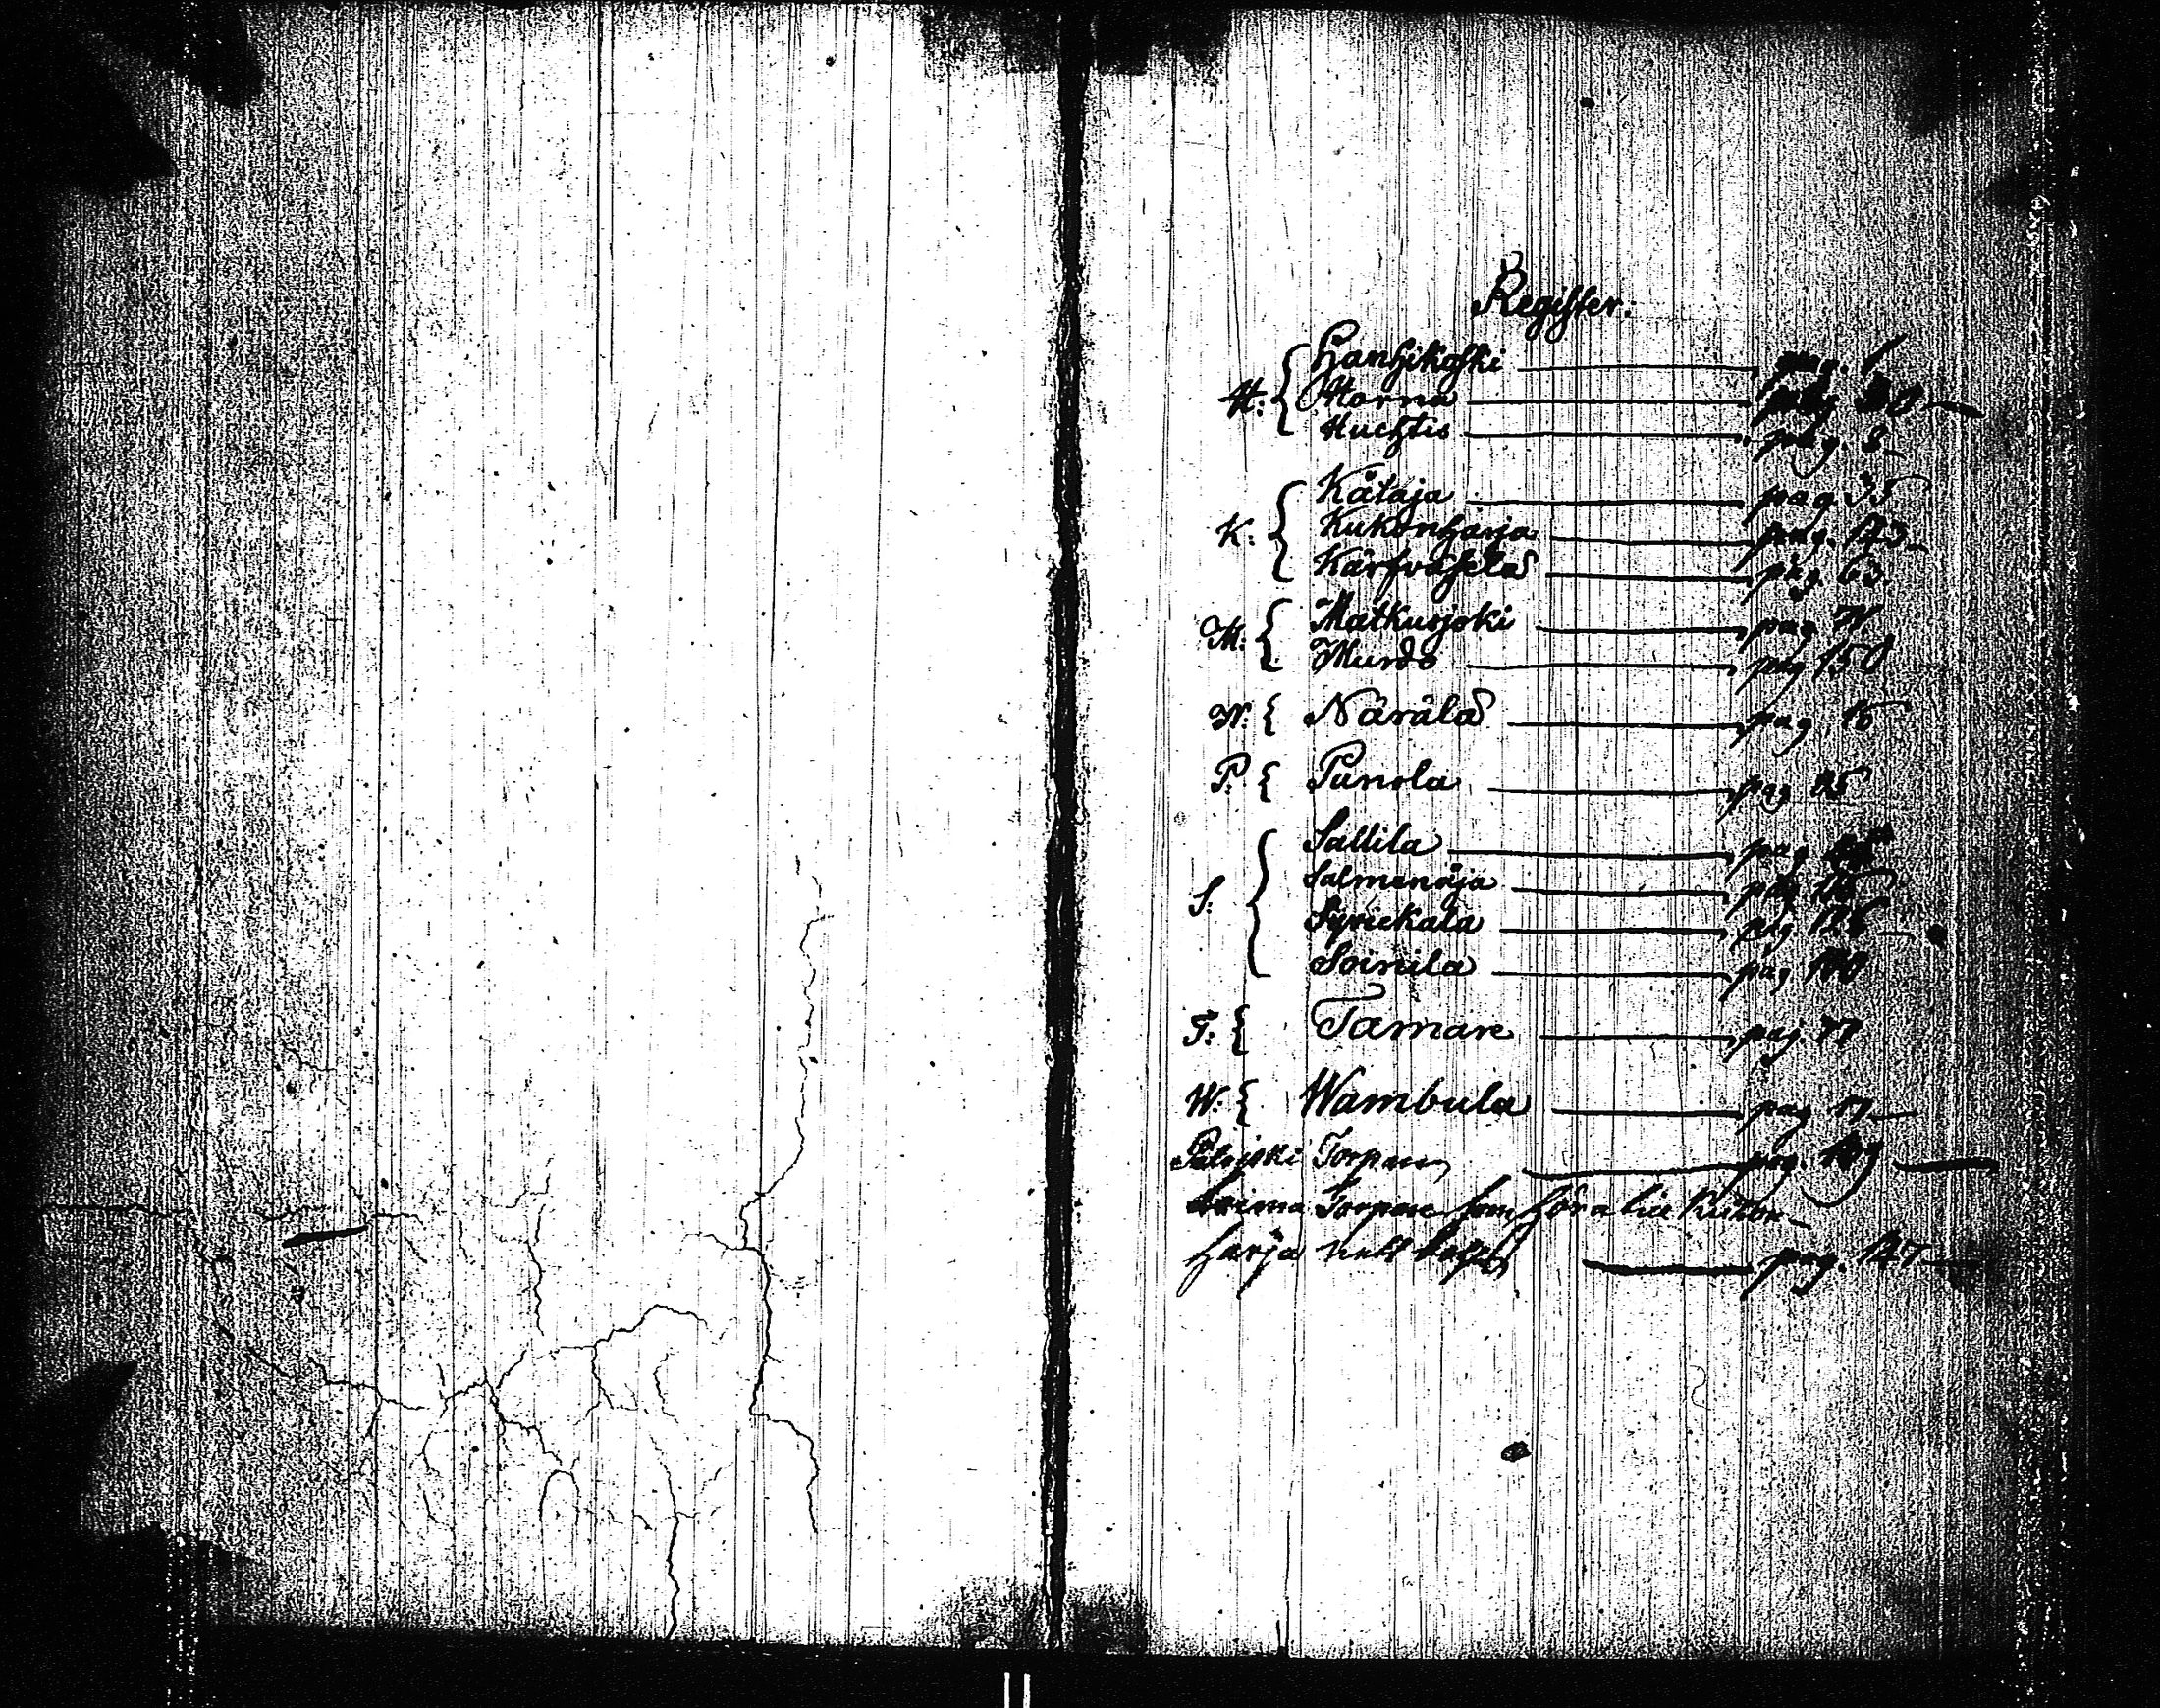 Register:
H: { Hanhikoski pag. 1
Horna pag 30
Huchtis pag. 8
K: { Kätaja pag 35
Kukonharja pag. 123
Kärfvasela pag. 63
M: { Matkusjoki pag 71
Murdo pag 150
N: { Närälä pag 15
P: { Punola pag 25
S: { Sallila pag
Salmenoja pag
Syrickala pag 126
Soinila pag
T: { Tamare pag 77
W: { Wambula pag 17
Torpare pag. 109
Torpare som höra till Kukon-
harja pag. 147